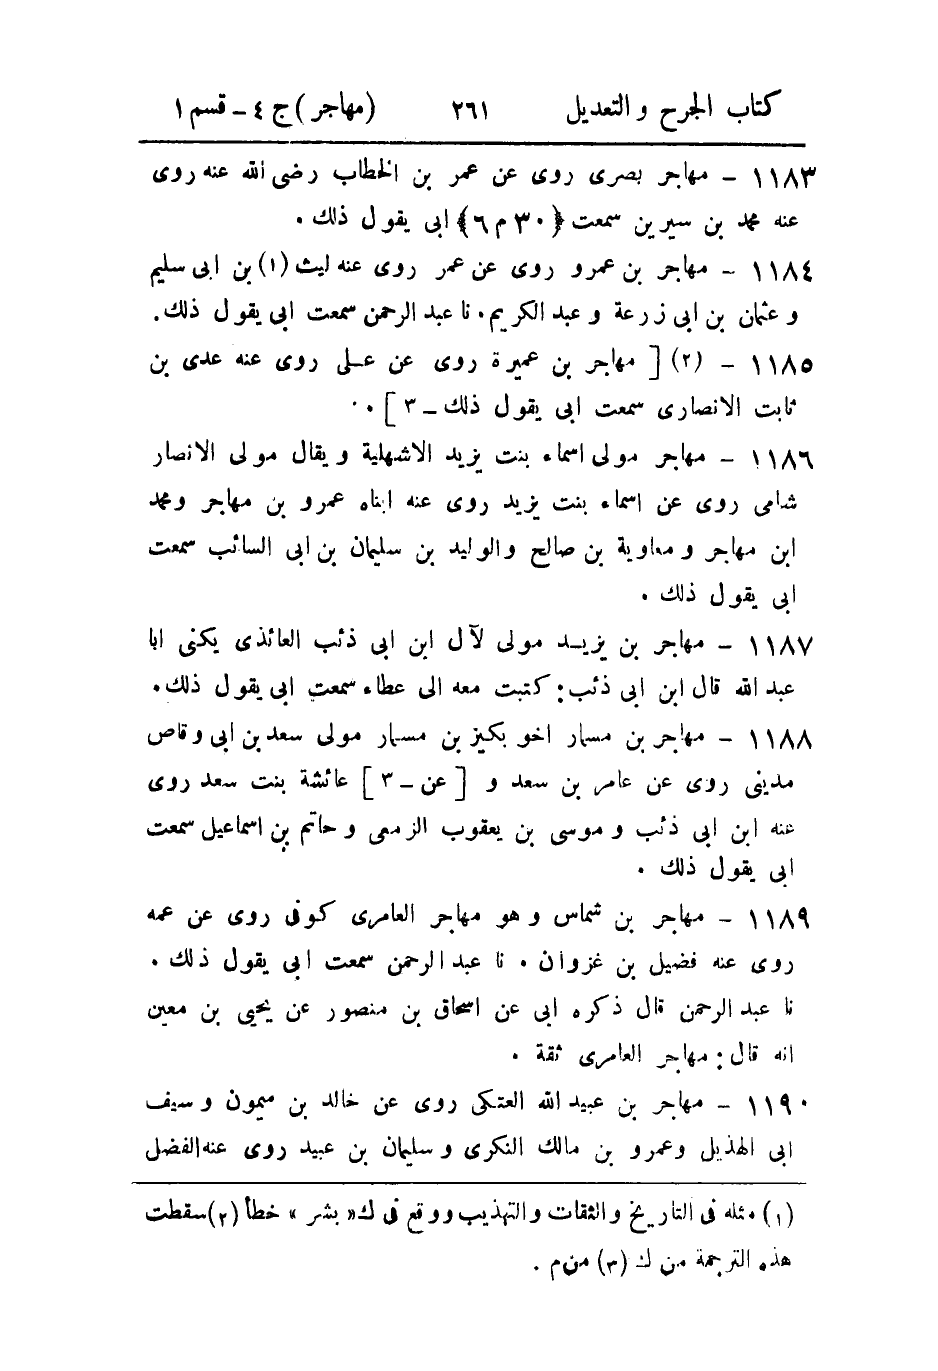 كتاب الجرح و التعديل ٢٦١ (مهاجر) ج ٤ - قسم ١
١١٨٣ - مهاجر بصرى روى عن عمر بن الخطاب رضى الله عنه روى
عنه محمد بن سيرين سمعت ﴿٣٠ م ٦﴾ ابى يقول ذلك .
١١٨٤ - مهاجر بن عمرو روى عن عمر روى عنه ليث (١) بن ابى سليم
و عثمان بن ابى زرعة و عبد الكريم . نا عبد الرحمن سمعت ابى يقول ذلك .
١١٨٥ - (٢) [ مهاجر بن عميرة روى عن على روى عنه عدى بن
ثابت الانصارى سمعت ابى يقول ذلك - ٣ ] .
١١٨٦ - مهاجر مولى اسماء بنت يزيد الاشهلية و يقال مولى الانصار
شامى روى عن اسماء بنت يزيد روى عنه ابناه عمرو بن مهاجر ومحمد
ابن مهاجر و معاوية بن صالح والوليد بن سليمان بن ابى السائب سمعت
ابى يقول ذلك .
١١٨٧ - مهاجر بن يزيد مولى لآل ابن ابى ذئب العائذى يكنى ابا
عبد الله قال ابن ابى ذئب : كتبت معه الى عطاء سمعت ابى يقول ذلك .
١١٨٨ - مهاجر بن مسمار اخو بكير بن مسمار مولى سعد بن ابى وقاص
مدينى روى عن عامر بن سعد و [ عن - ٣ ] عائشة بنت سعد روى
عنه ابن ابى ذئب و موسى بن يعقوب الزمعى و حاتم بن اسماعيل سمعت
ابى يقول ذلك .
١١٨٩ - مهاجر بن شماس و هو مهاجر العامرى كوفى روى عن عمه
روى عنه فضيل بن غزوان . نا عبد الرحمن سمعت ابى يقول ذلك .
نا عبد الرحمن قال ذكره ابى عن اسحاق بن منصور عن يحيى بن معين
انه قال : مهاجر العامرى ثقة .
١١٩٠ - مهاجر بن عبيد الله العتكى روى عن خالد بن ميمون و سيف
ابى الهذيل وعمرو بن مالك النكرى و سليمان بن عبيد روى عنه الفضل
(١) مثله فى التاريخ و الثقات و التهذيب و وقع فى ك « بشر » خطأ (٢) سقطت
هذه الترجمة من ك (٣) من م .